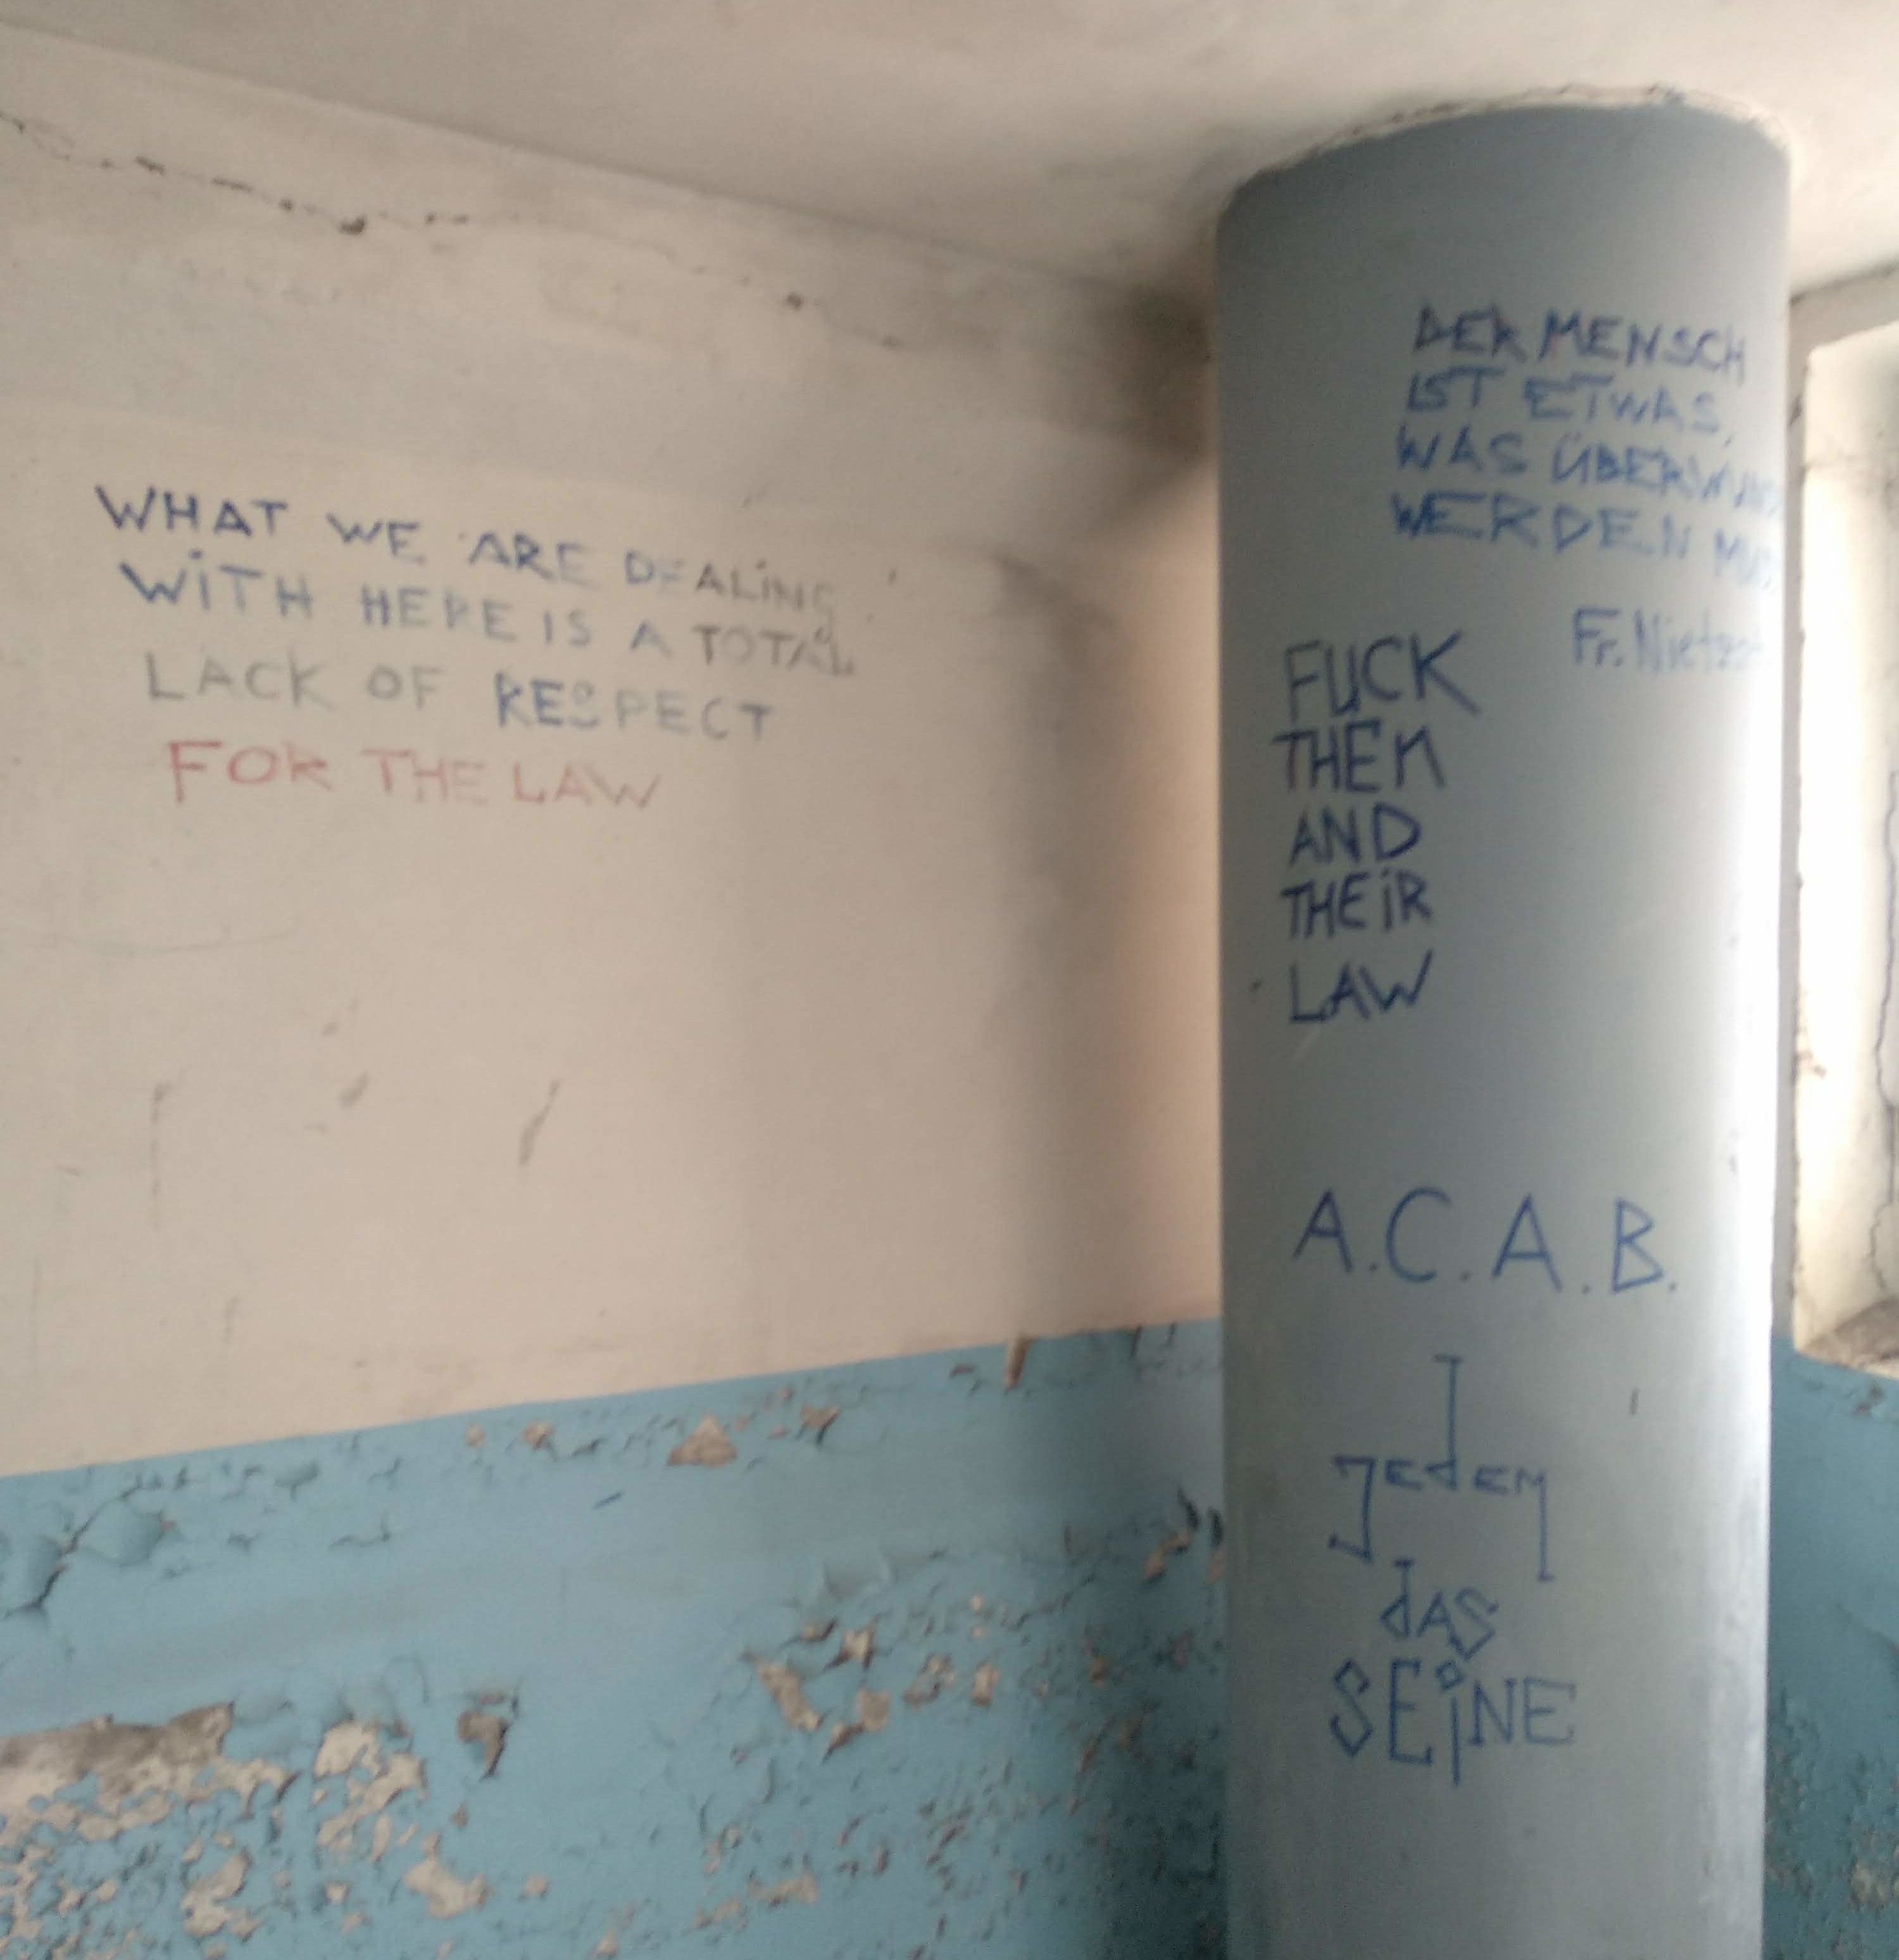 WHAT WE ARE DEALING
WITH HERE IS A TOTAL
LACK OF RESPECT
FOR THE LAW
DER MENSCH
IST ETWAS,
WAS
WERDEN
Fr.
FUCK
THEM
AND
THEIR
LAW
A.C.A.B.
JEdEM
dAS
SEiNE